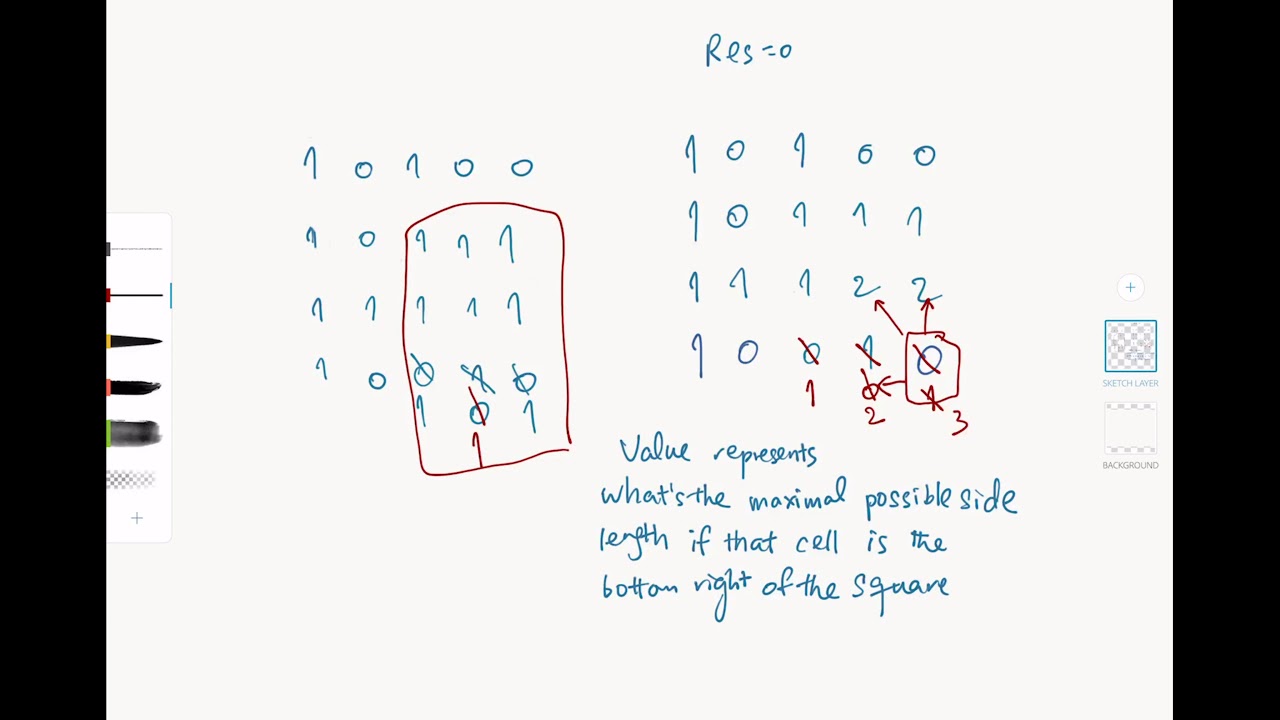 Res=0
1 0 1 0 0
1 0 1 1 1
1 1 1 1 1
1 0 0 1 0
1 0 1
1
1 0 1 0 0
1 0 1 1 1
1 1 1 2 2
1 0 0 1 0
1 0 1
2 3
Value represents
what's the maximal possible side
length if that cell is the
bottom right of the square
+
SKETCH LAYER
BACKGROUND
+